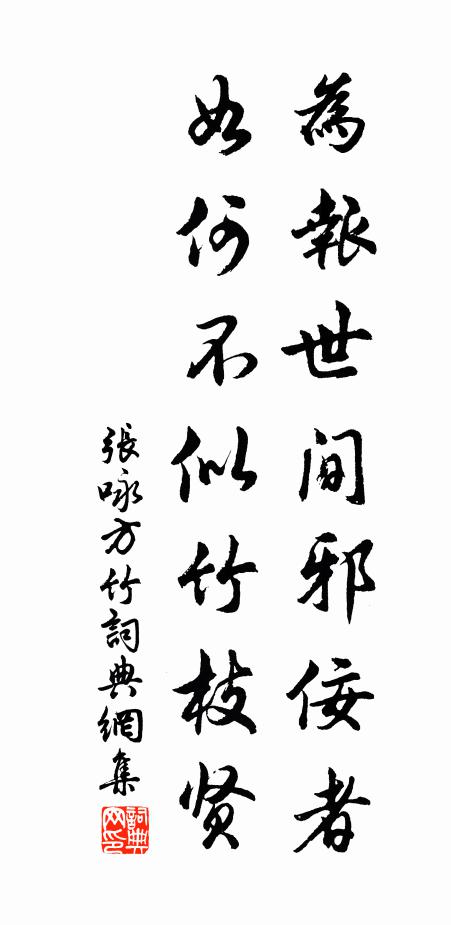 為報世間邪佞者
如何不似竹枝贤
張咏方竹詞典網集
詞典
网印